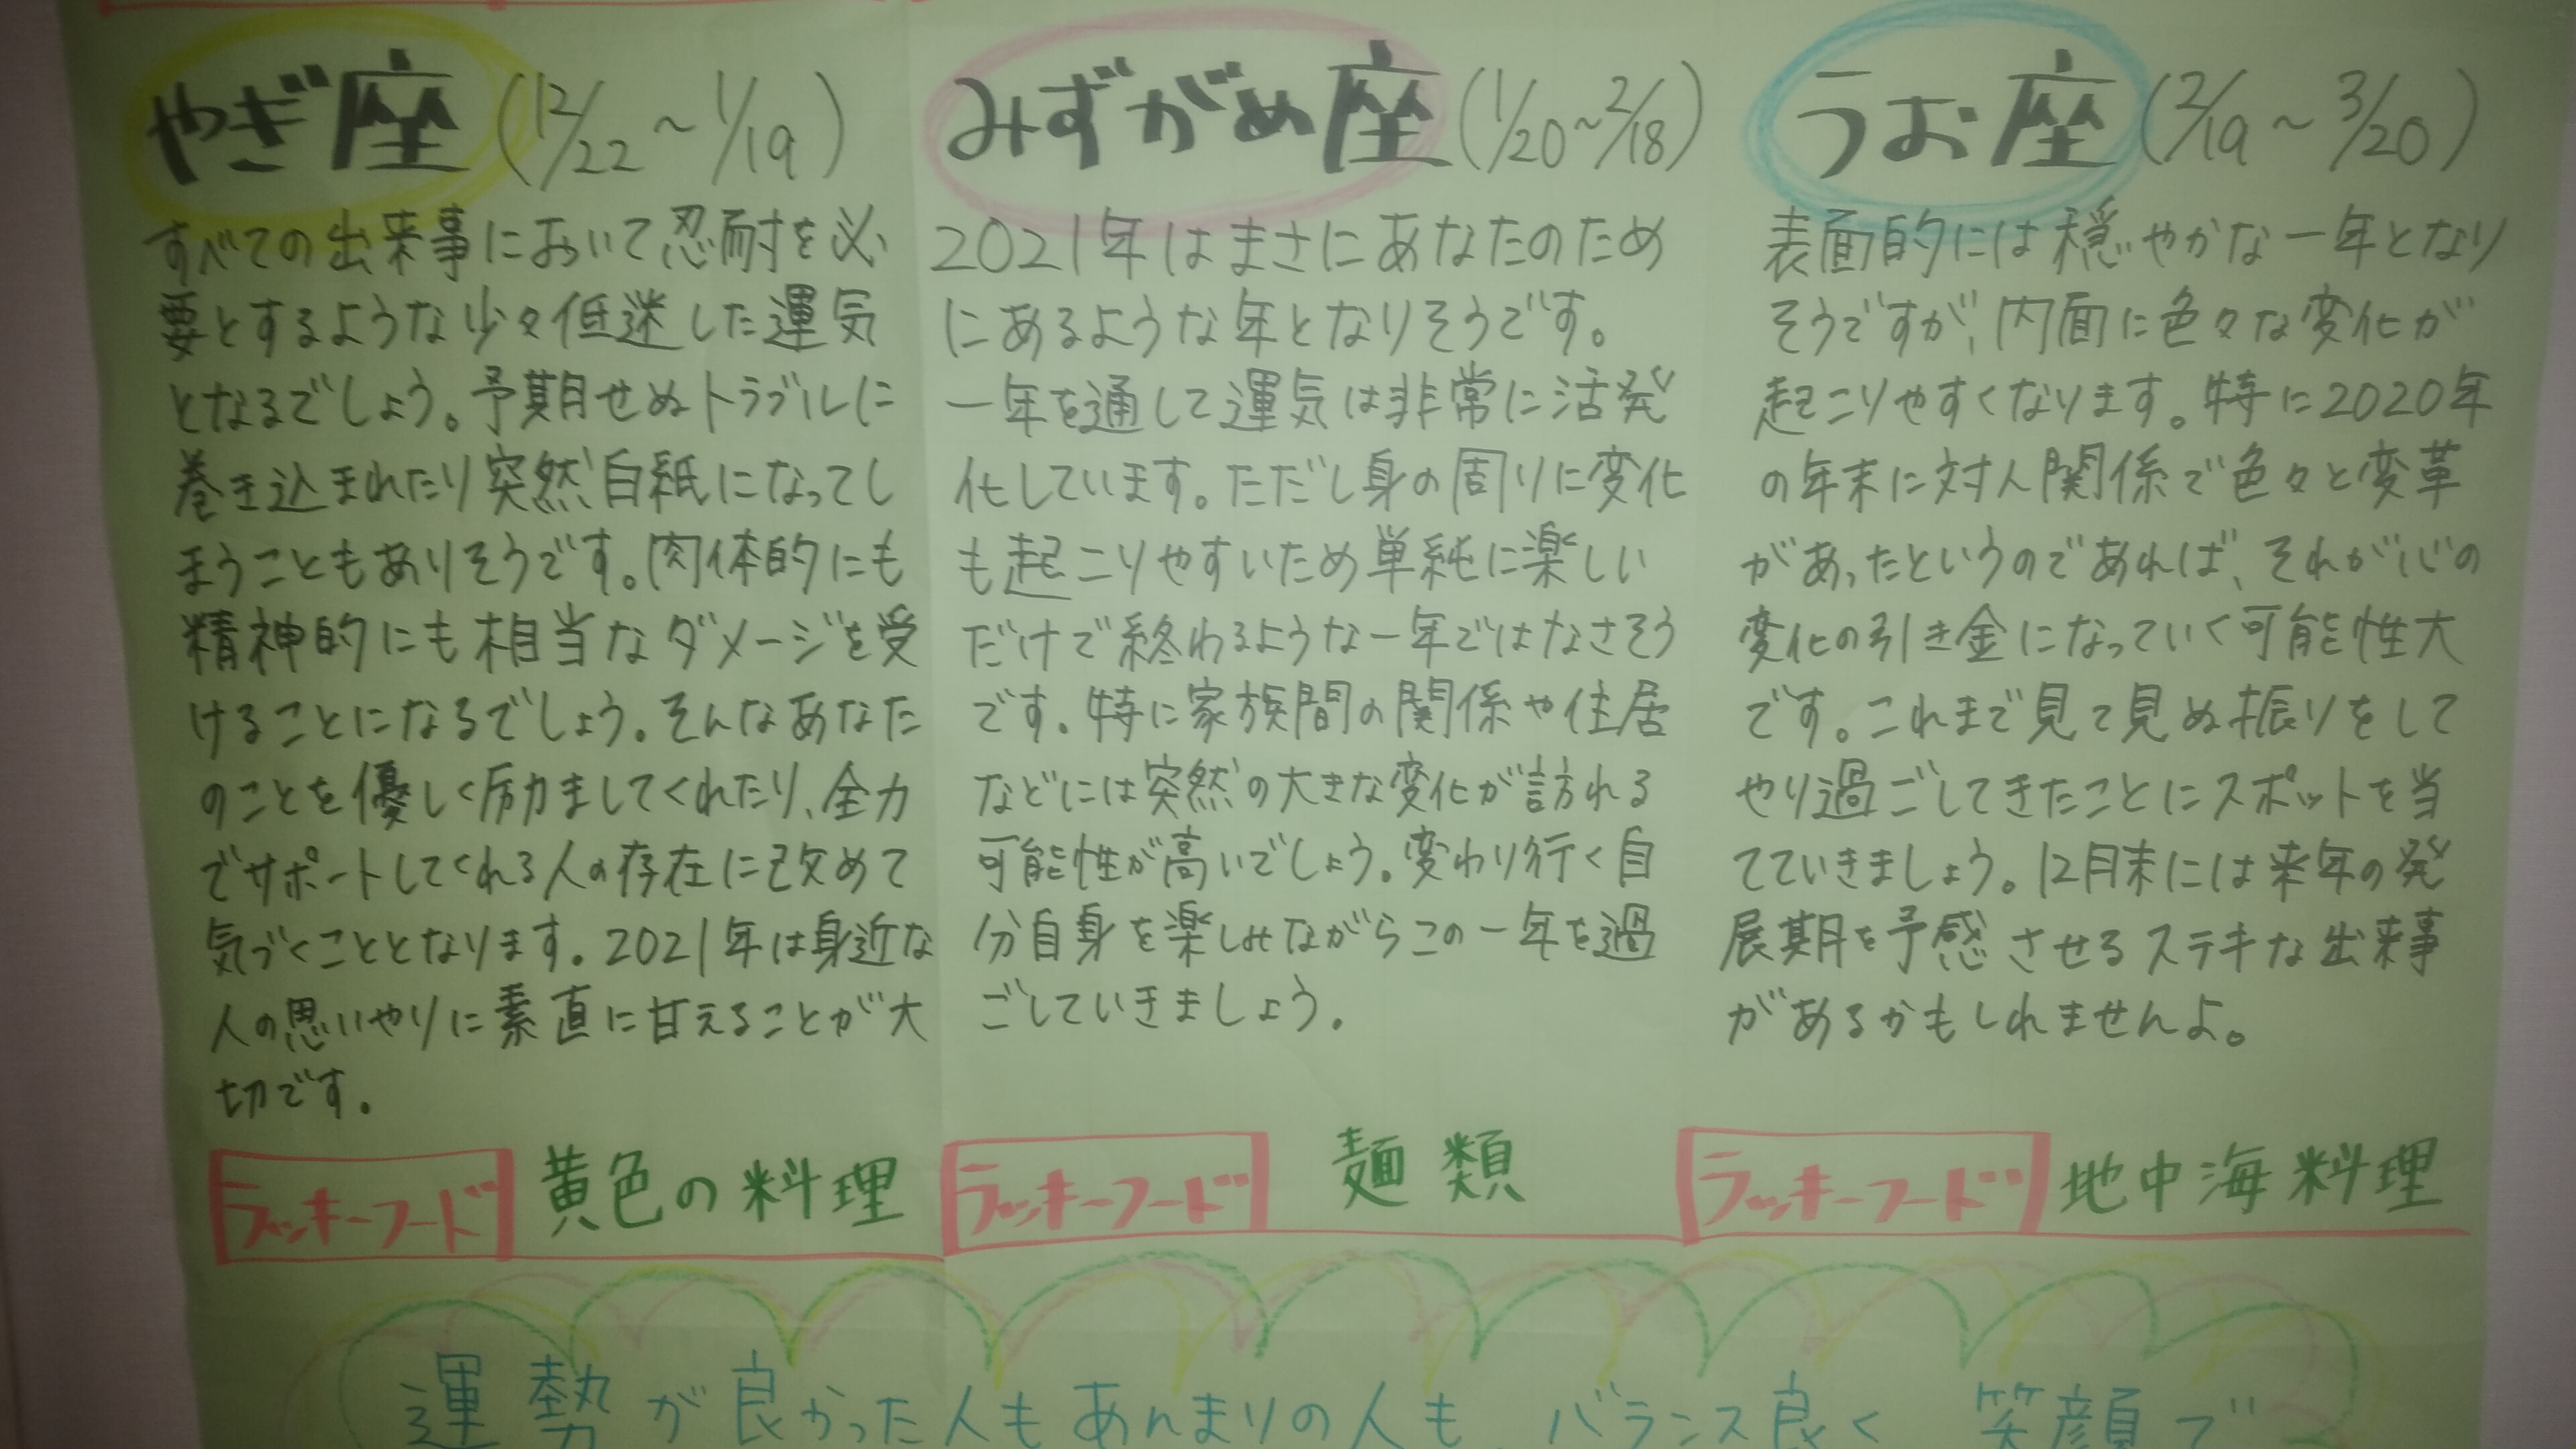 やぎ座(12/22~1/19)
すべての出来事において忍耐を必
要とするような少々低迷した運気
となるでしょう。予期せぬトラブルに
巻き込まれたり突然白紙になってし
まうこともありそうです。肉体的にも
精神的にも相当なダメージを受
けることになるでしょう。そんなあなた
のことを優しく励ましてくれたり、全力
でサポートしてくれる人の存在に改めて
気づくこととなります。2021年は身近な
人の思いやりに素直に甘えることが大
切です。
ラッキーフード 黄色の料理
みずがめ座(1/20~2/18)
2021年はまさにあなたのため
にあるような年となりそうです。
一年を通して運気は非常に活発
化しています。ただし身の周りに変化
も起こりやすいため単純に楽しい
だけで終わるような一年ではなさそう
です。特に家族間の関係や住居
などには突然の大きな変化が訪れる
可能性が高いでしょう。変わり行く自
分自身を楽しみながらこの一年を過
ごしていきましょう。
ラッキーフード 麺類
うお座(2/19~3/20)
表面的には穏やかな一年となり
そうですが、内面に色々な変化が
起こりやすくなります。特に2020年
の年末に対人関係で色々と変革
があったというのであれば、それが心の
変化の引き金になっていく可能性大
です。これまで見て見ぬ振りをして
やり過ごしてきたことにスポットを当
てていきましょう。12月末には来年の発
展期を予感させるステキな出来事
があるかもしれませんよ。
ラッキーフード 地中海料理
運勢が良かった人もあんまりの人も、バランス良く 笑顔で